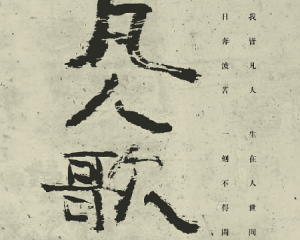 凡人歌
我皆凡人 生在人世间
日奔波苦 一刻不得闲